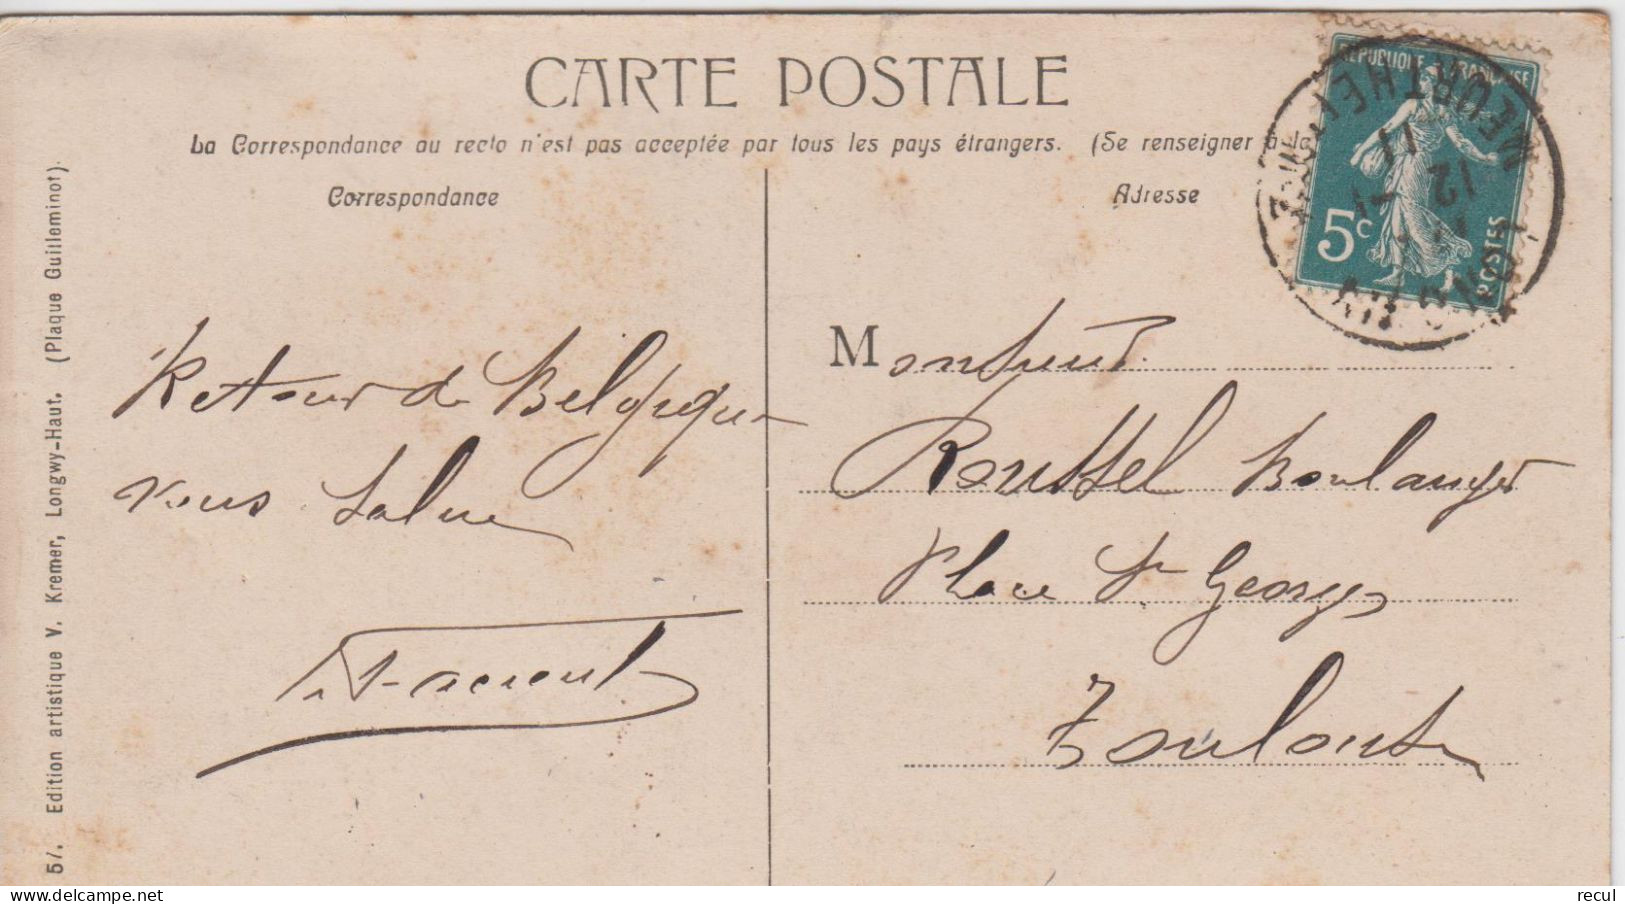 CARTE POSTALE
La Correspondance au recto n'est pas acceptée par tous les pays étrangers. (Se renseigner à la
Correspondance
Adresse
RÉPUBLIQUE FRANÇAISE
5c
POSTES
MEURTHE ET M
12
11
Retour de Belgique
vous salue
Monsieur
Roussel Boulanger
Place St Georges
Toulouse
57. Edition artistique V. Kremer, Longwy-Haut. (Plaque Guilleminot).
delcampe.net
recul